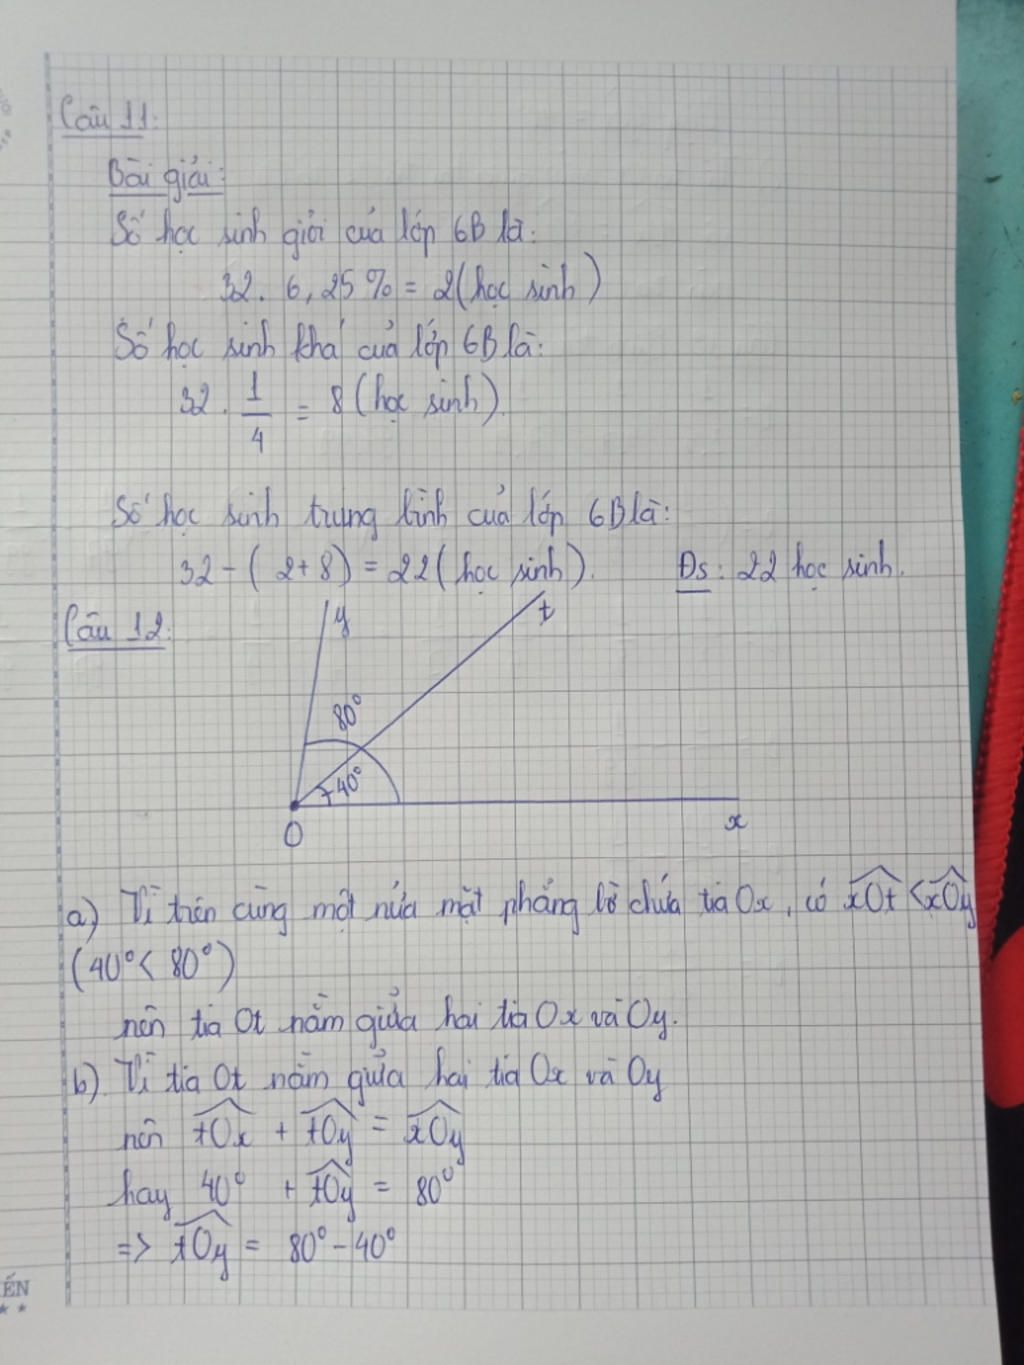 Câu 11:
Bài giải:
Số học sinh giỏi của lớp 6B là:
32. 6,25% = 2 (học sinh)
Số học sinh khá của lớp 6B là:
32 . 1/4 = 8 (học sinh).
Số học sinh trung bình của lớp 6B là:
32 - ( 2+8) = 22 (học sinh). Đs: 22 học sinh.
Câu 12:
y
t
80°
40°
O
x
a) Vì trên cùng một nửa mặt phẳng bờ chứa tia Ox, có xOt < xOy
(40° < 80°)
nên tia Ot nằm giữa hai tia Ox và Oy.
b) Vì tia Ot nằm giữa hai tia Ox và Oy
nên tOx + tOy = xOy
hay 40° + tOy = 80°
=> tOy = 80° - 40°
ẾN